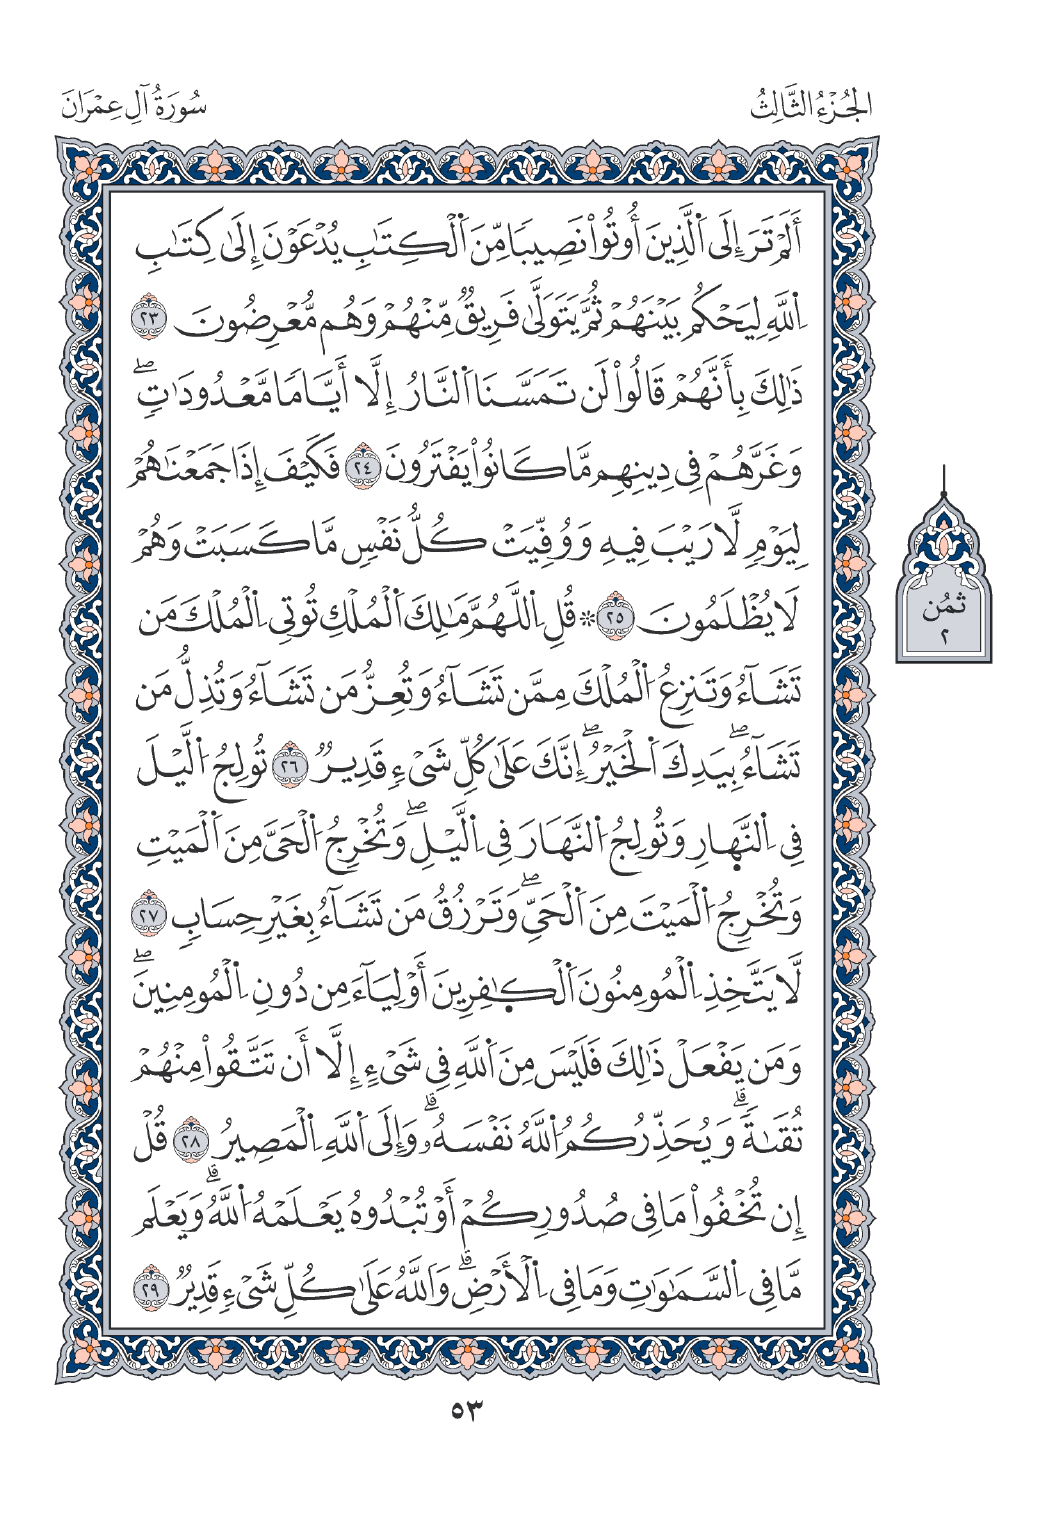 الجُزْءُ الثَّالِثُ
سُورَةُ آلِ عِمْرَانَ
أَلَمْ تَرَ إِلَى اَ۬لذِينَ أُوتُواْ نَصِيباٗ مِّنَ اَ۬لْكِتَٰبِ يُدْعَوْنَ إِلَىٰ كِتَٰبِ
اِ۬للَّهِ لِيَحْكُمَ بَيْنَهُمْ ثُمَّ يَتَوَلَّىٰ فَرِيقٞ مِّنْهُمْ وَهُم مُّعْرِضُونَ ٢٣
ذَٰلِكَ بِأَنَّهُمْ قَالُواْ لَن تَمَسَّنَا اَ۬لنَّارُ إِلَّا أَيَّاماٗ مَّعْدُودَٰتٖۖ
وَغَرَّهُمْ فِي دِينِهِم مَّا كَانُواْ يَفْتَرُونَ ٢٤ فَكَيْفَ إِذَا جَمَعْنَٰهُمْ
لِيَوْمٖ لَّا رَيْبَ فِيهِ وَوُفِّيَتْ كُلُّ نَفْسٖ مَّا كَسَبَتْ وَهُمْ
لَا يُظْلَمُونَ ٢٥ ۞ قُلِ اِ۬للَّهُمَّ مَٰلِكَ اَ۬لْمُلْكِ تُوتِي اِ۬لْمُلْكَ مَن
تَشَآءُ وَتَنزِعُ اُ۬لْمُلْكَ مِمَّن تَشَآءُ وَتُعِزُّ مَن تَشَآءُ وَتُذِلُّ مَن
تَشَآءُۖ بِيَدِكَ اَ۬لْخَيْرُۖ إِنَّكَ عَلَىٰ كُلِّ شَيْءٖ قَدِيرٞ ٢٦ تُولِجُ اُ۬ليْلَ
فِي اِ۬لنَّه۪ارِ وَتُولِجُ اُ۬لنَّهَارَ فِي اِ۬ليْلِۖ وَتُخْرِجُ اُ۬لْحَيَّ مِنَ اَ۬لْمَيْتِ
وَتُخْرِجُ اُ۬لْمَيْتَ مِنَ اَ۬لْحَيِّۖ وَتَرْزُقُ مَن تَشَآءُ بِغَيْرِ حِسَابٖ ٢٧
لَّا يَتَّخِذِ اِ۬لْمُومِنُونَ اَ۬لْكٰ۪فِرِينَ أَوْلِيَآءَ مِن دُونِ اِ۬لْمُومِنِينَۖ
وَمَن يَفْعَلْ ذَٰلِكَ فَلَيْسَ مِنَ اَ۬للَّهِ فِي شَيْءٍ إِلَّا أَن تَتَّقُواْ مِنْهُمْ
تُقَىٰةٗۗ وَيُحَذِّرُكُمُ اُ۬للَّهُ نَفْسَهُۥۗ وَإِلَى اَ۬للَّهِ اِ۬لْمَصِيرُ ٢٨ قُلْ
إِن تُخْفُواْ مَا فِي صُدُورِكُمْ أَوْ تُبْدُوهُ يَعْلَمْهُ اُ۬للَّهُۗ وَيَعْلَمُ
مَا فِي اِ۬لسَّمَٰوَٰتِ وَمَا فِي اِ۬لْأَرْضِۗ وَاَ۬للَّهُ عَلَىٰ كُلِّ شَيْءٖ قَدِيرٞ ٢٩
ثُمُن
٢
٥٣